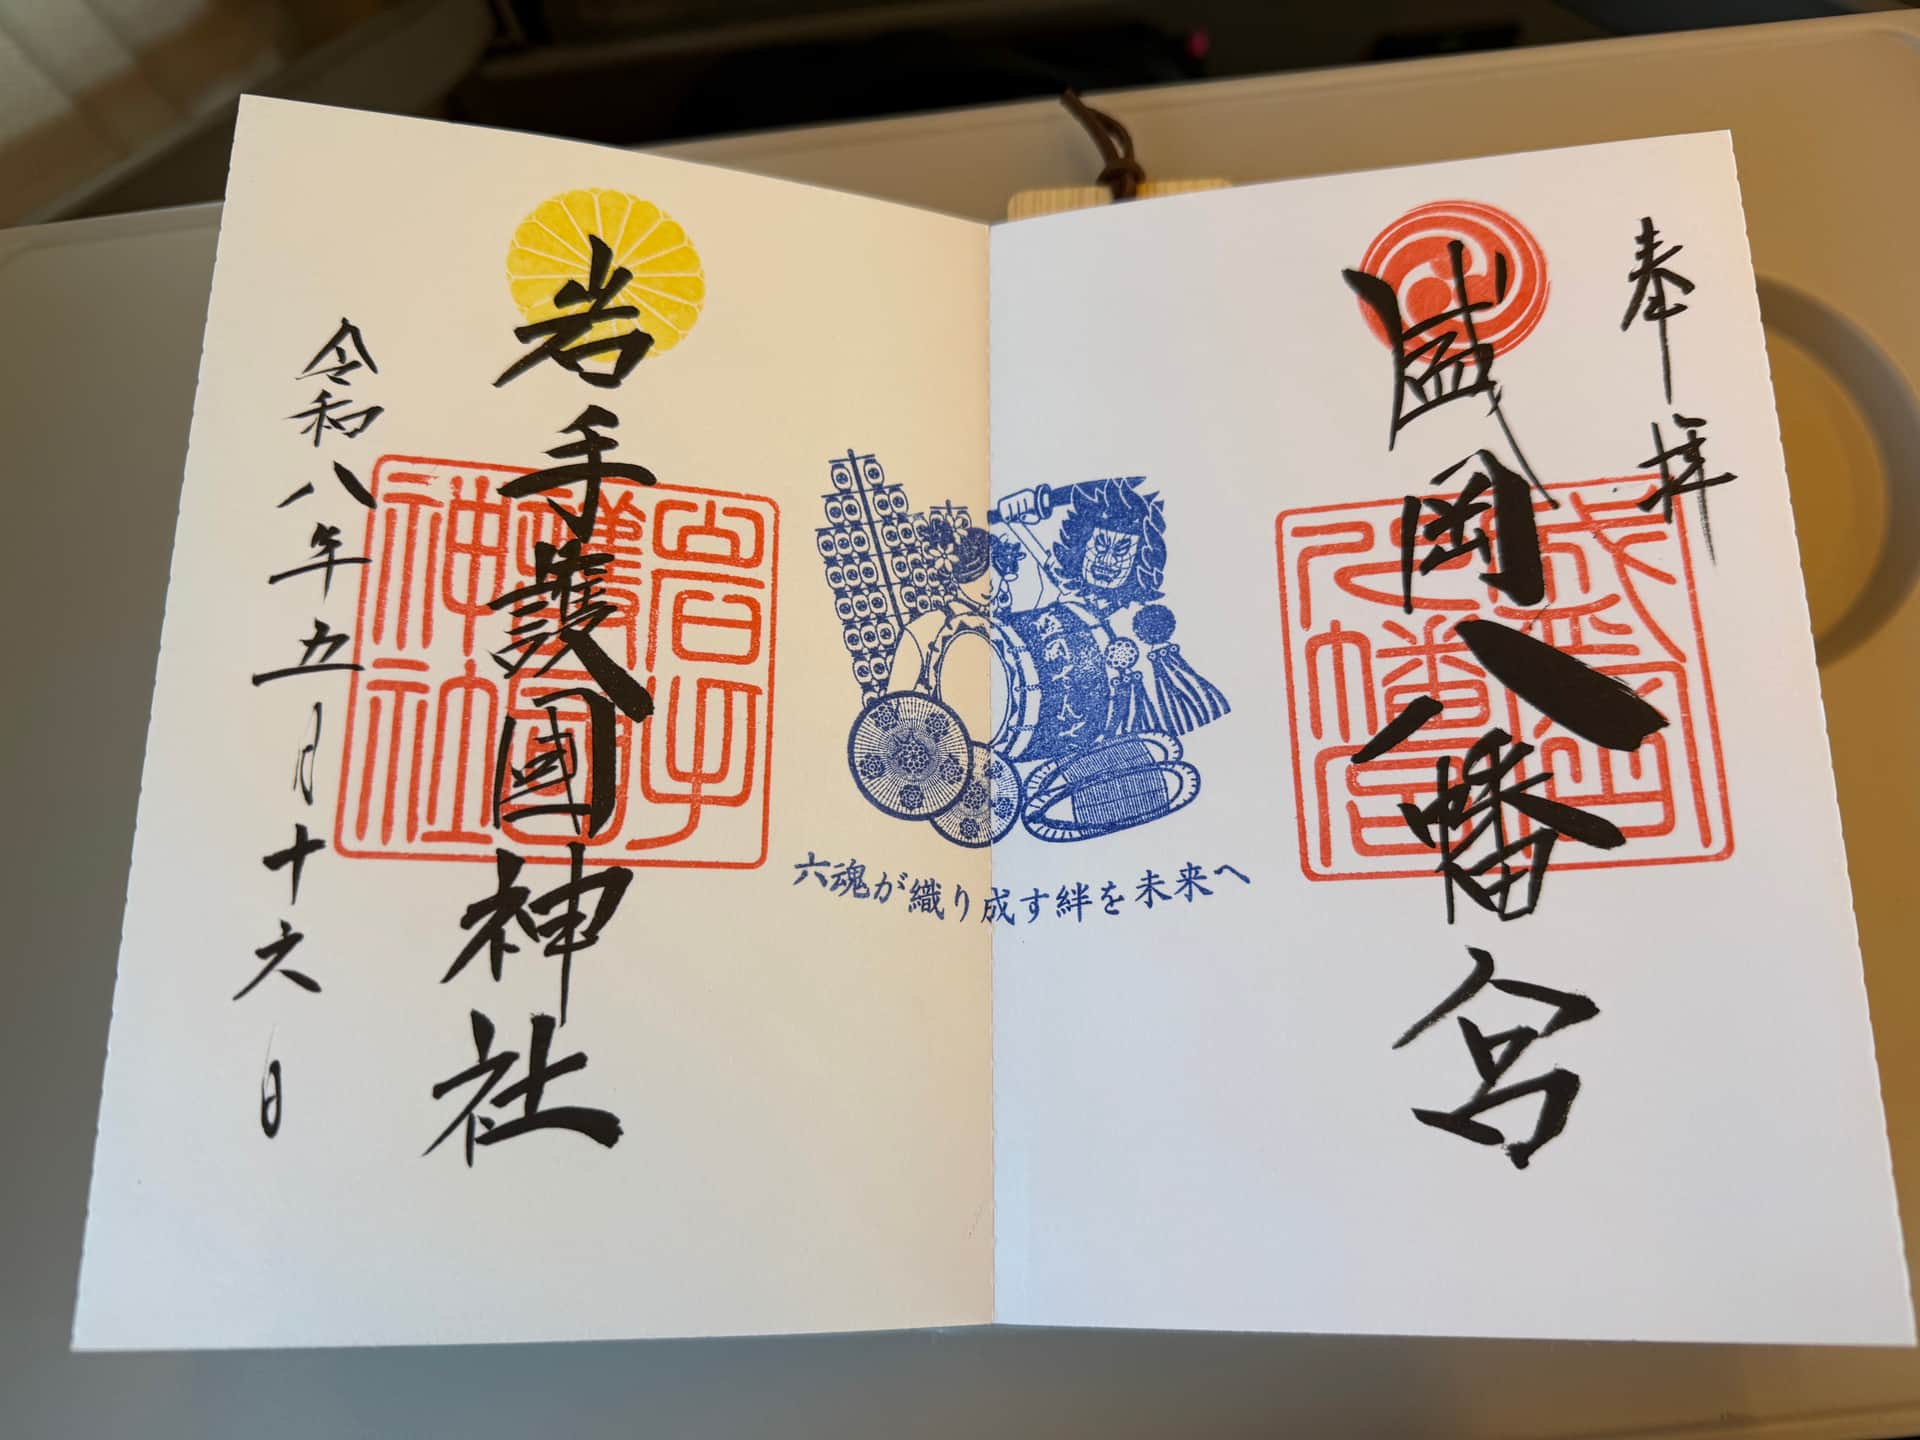 奉拝
盛岡八幡宮
盛岡八幡宮
盛岡さんさ
六魂が織り成す絆を未来へ
岩手護國神社
岩手護國神社
令和八年五月十六日